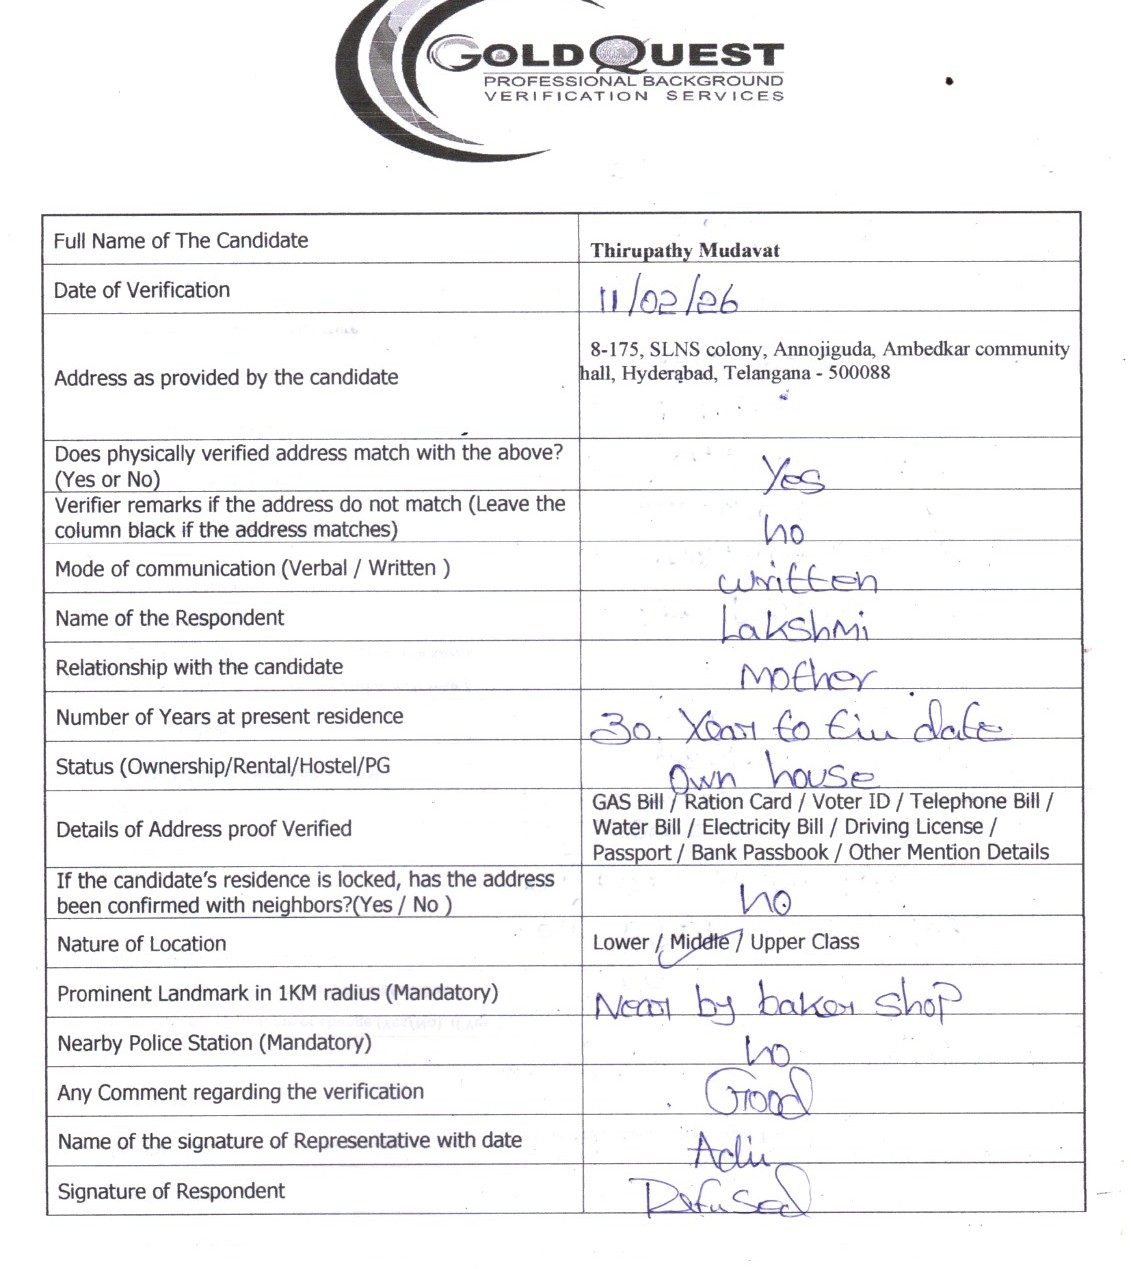 GOLDQUEST
PROFESSIONAL BACKGROUND
VERIFICATION SERVICES
Full Name of The Candidate
Thirupathy Mudavat
Date of Verification
11/02/26
Address as provided by the candidate
8-175, SLNS colony, Annojiguda, Ambedkar community
hall, Hyderabad, Telangana - 500088
Does physically verified address match with the above?
(Yes or No)
Yes
Verifier remarks if the address do not match (Leave the
column black if the address matches)
no
Mode of communication (Verbal / Written )
written
Name of the Respondent
Lakshmi
Relationship with the candidate
Mother
Number of Years at present residence
30. Year to date
Status (Ownership/Rental/Hostel/PG
Own house
Details of Address proof Verified
GAS Bill / Ration Card / Voter ID / Telephone Bill /
Water Bill / Electricity Bill / Driving License /
Passport / Bank Passbook / Other Mention Details
If the candidate's residence is locked, has the address
been confirmed with neighbors?(Yes / No )
no
Nature of Location
Lower / Middle / Upper Class
Prominent Landmark in 1KM radius (Mandatory)
Near by baker shop
Nearby Police Station (Mandatory)
no
Any Comment regarding the verification
Good
Name of the signature of Representative with date
Signature of Respondent
Refused